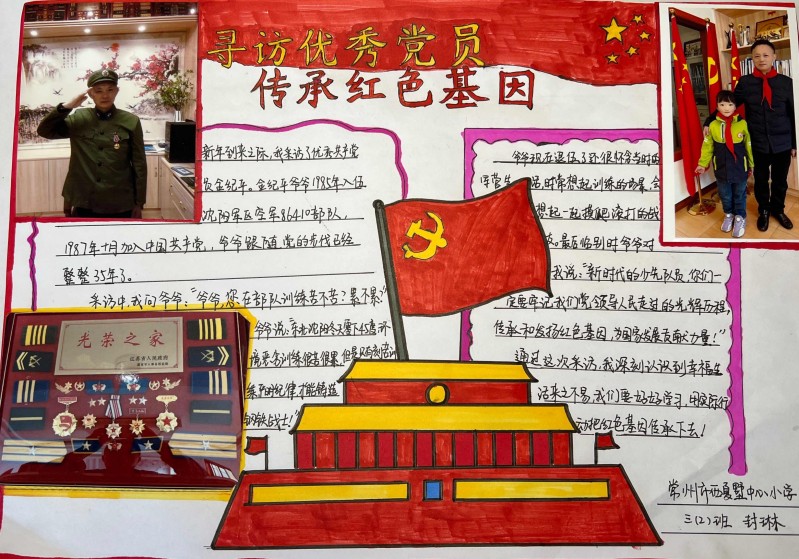 寻访优秀党员
传承红色基因
新年到来之际，我采访了优秀共产党
员金纪平。金纪平爷爷1985年入伍
沈阳军区空军86410部队，
1987年十月加入中国共产党，爷爷跟随党的步伐已经
整整35年了。
采访中，我问爷爷："爷爷，您在部队训练苦不苦？累不累？"
爷说："东北沈阳冬天零下45度环
境艰苦训练
的纪律才能铸造
钢铁战士！"
光荣之家
江苏省人民政府
爷爷现在退伍了还很怀念当时的
军营生活，时常想起训练的场景，会
想起一起摸爬滚打的战
友。最后临别时爷爷对
我说："新时代的少先队员，你们一
定要牢记我们党领导人民走过的光辉历程，
传承和发扬红色基因，为国家发展贡献力量！"
通过这次采访，我深刻认识到幸福生
活来之不易，我们要好好学习，用实际行
动把红色基因传承下去！
常州市西夏墅中心小学
三(2)班 封琳